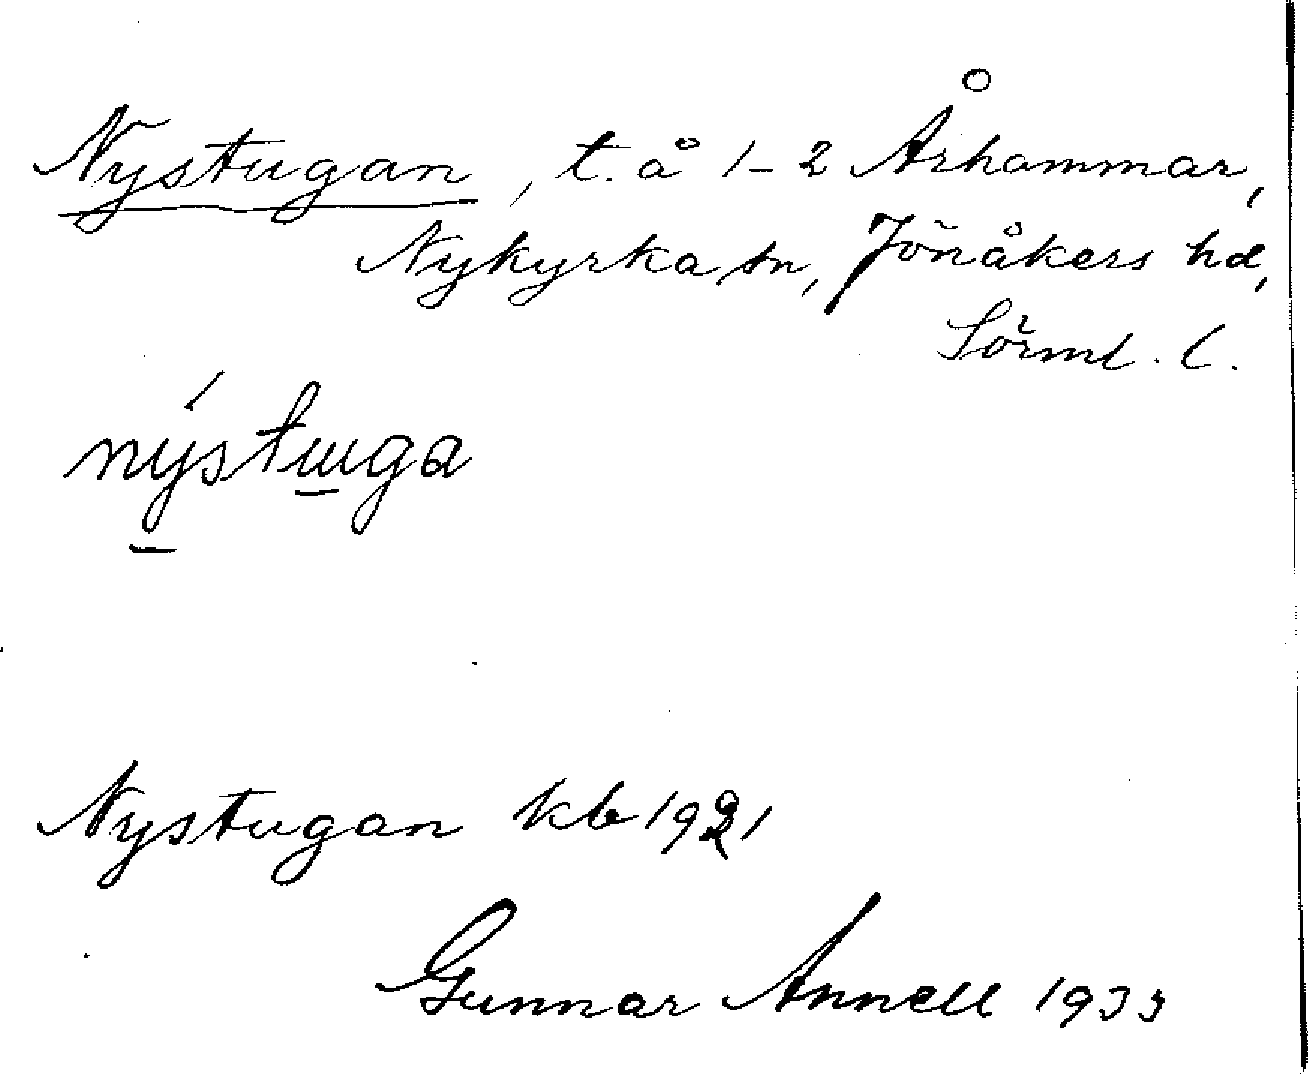 Nystugan, t. å 1-2 Århammar,
Nykyrka sn, Jönåkers hd,
Sörml. l.
nýstuga
Nystugan kb 1921
Gunnar Annell 1933